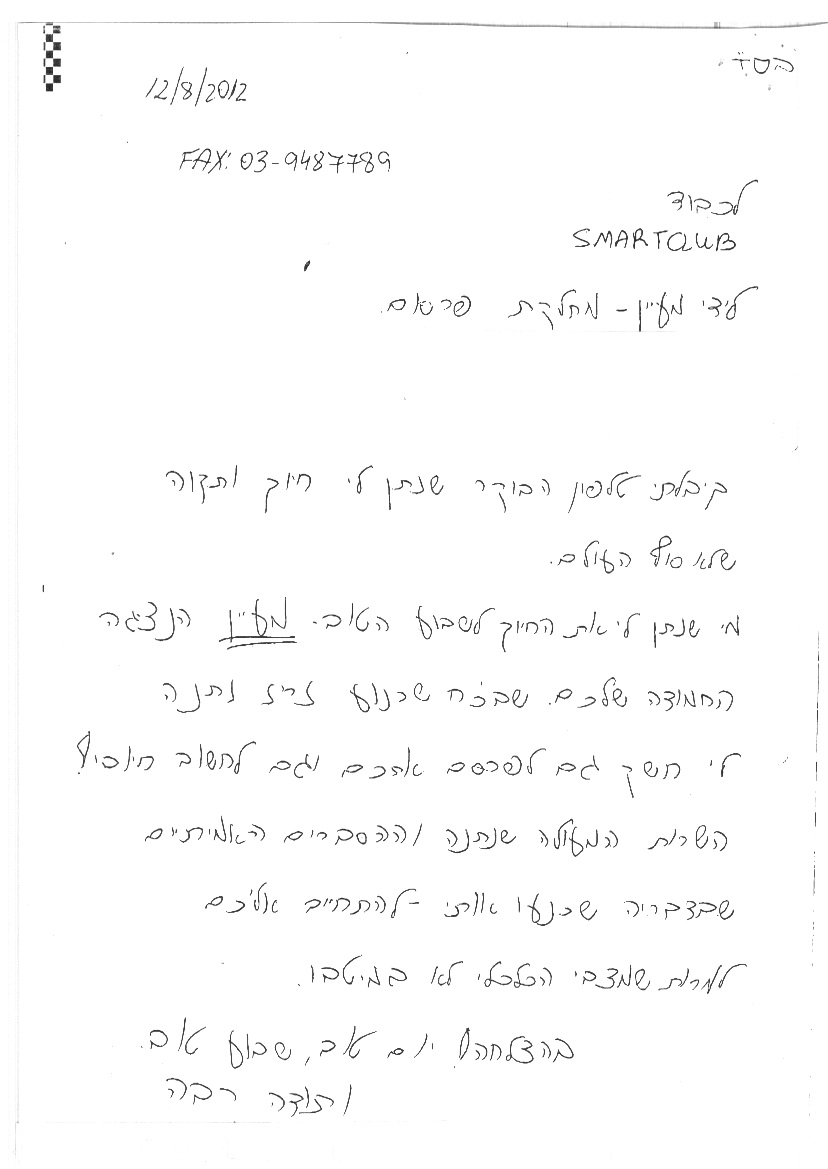 בס״ד
12/8/2012
FAX: 03-9487789
לכבוד
SMARTCLUB
לידי מעיין - מחלקת פרסום.
קיבלתי טלפון הבוקר שנתן לי חיוך ותקוה
שלא סוף העולם.
מי שנתן לי את החיוך לשבוע הטוב. מעיין הנציגה
החמודה שלכם. שבכח שכנוע זריז נתנה
לי חשק גם לפרסם אתכם וגם לחשוב חיובי!
השרות המעולה שנתנה וההסברים האמיתיים
שבדבריה שכנעו אותי - להתחייב אליכם
למרות שמצבי הכלכלי לא במיטבו.
בהצלחה! יום טוב, שבוע טוב.
ותודה רבה